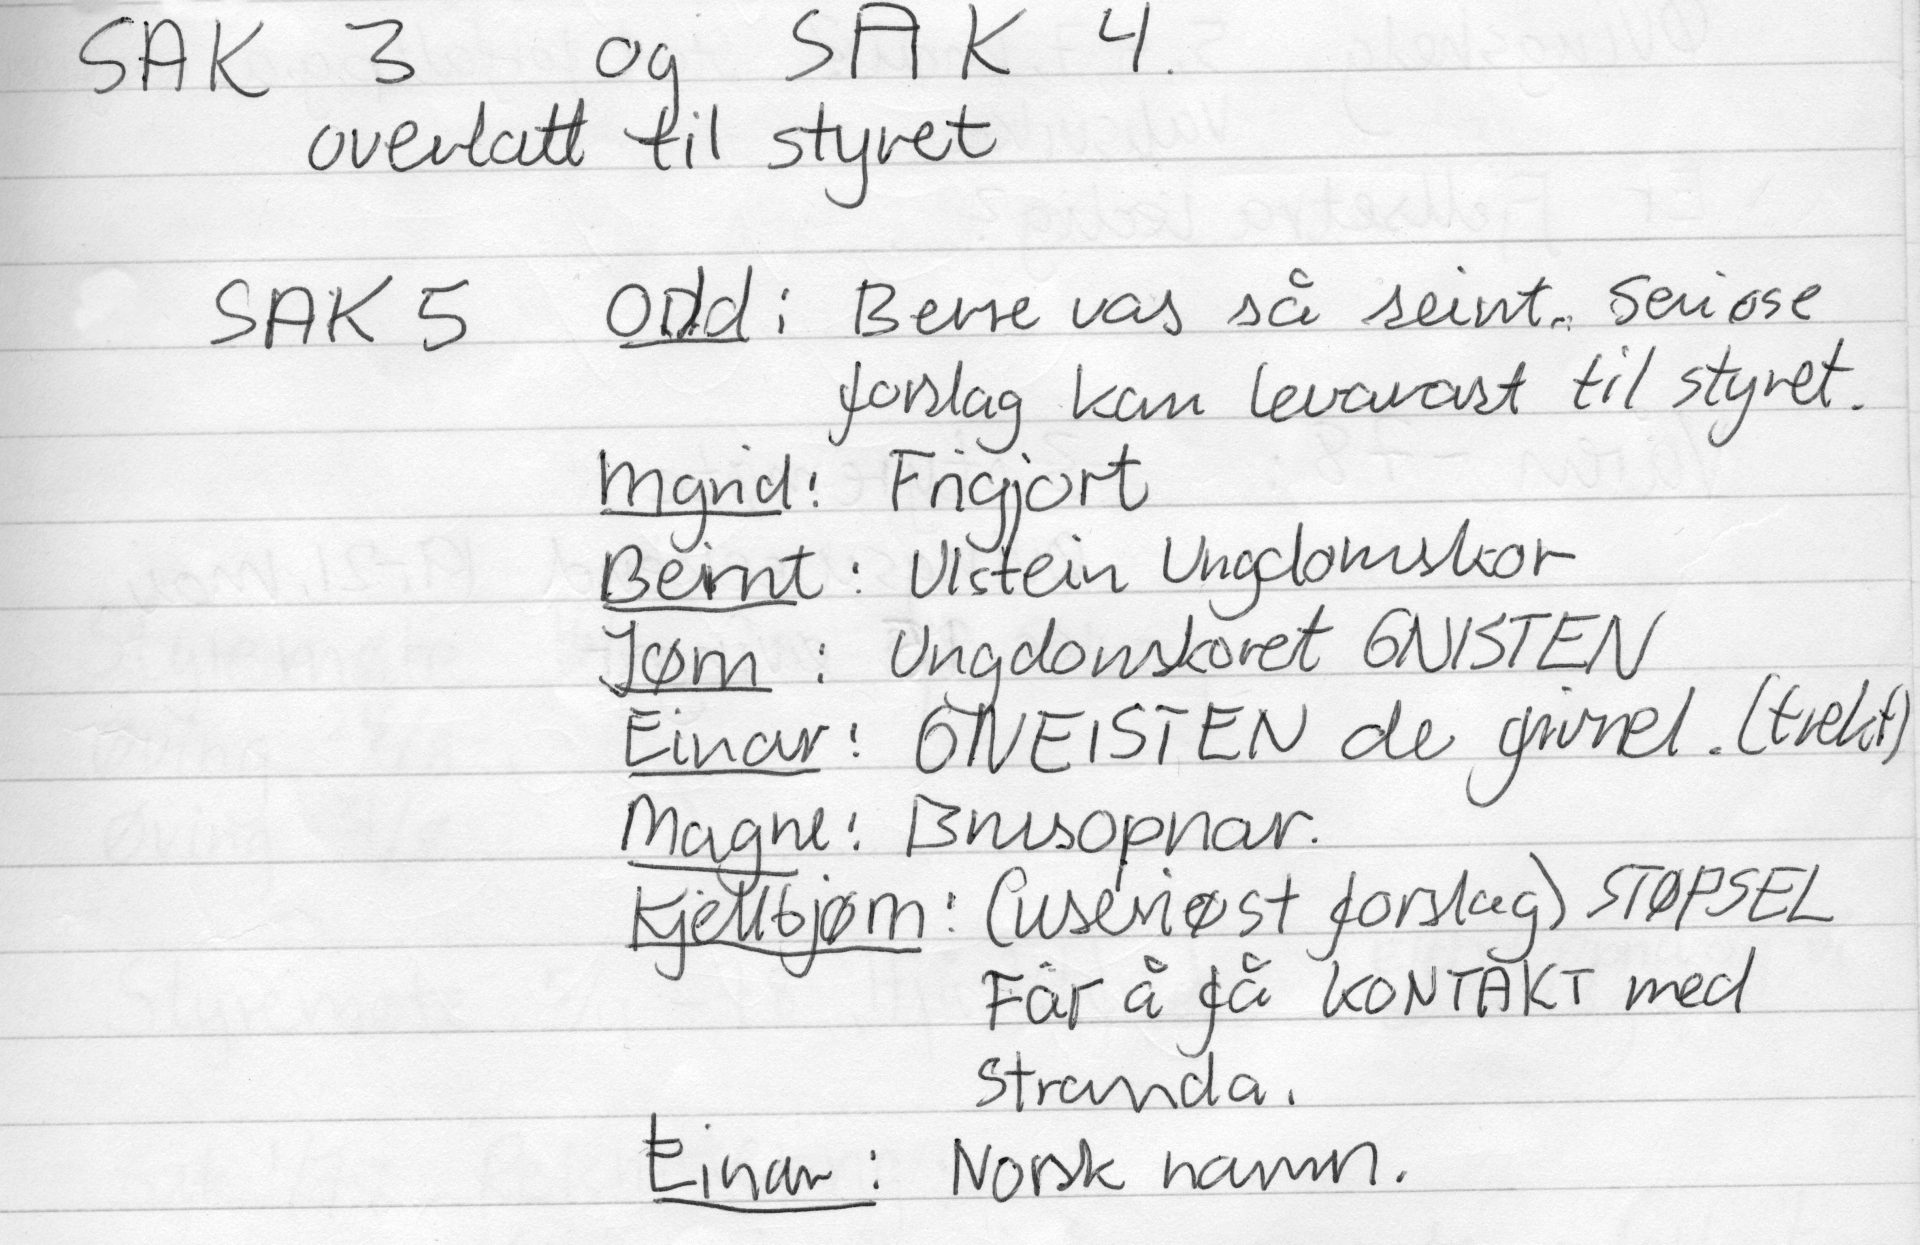 SAK 3 og SAK 4.
overlatt til styret
SAK 5 Odd: Berre vas så seint. Seriøse
forslag kan levarast til styret.
Ingrid: Frigjort
Bernt: Ulstein Ungdomskor
Jørn: Ungdomskoret GNISTEN
Einar: GNEISTEN de griner. (trekt)
Magne: Brusopnar.
Kjellbjørn: (useriøst forslag) STØPSEL
Før å få KONTAKT med
Stranda.
Einar: Norsk namn.